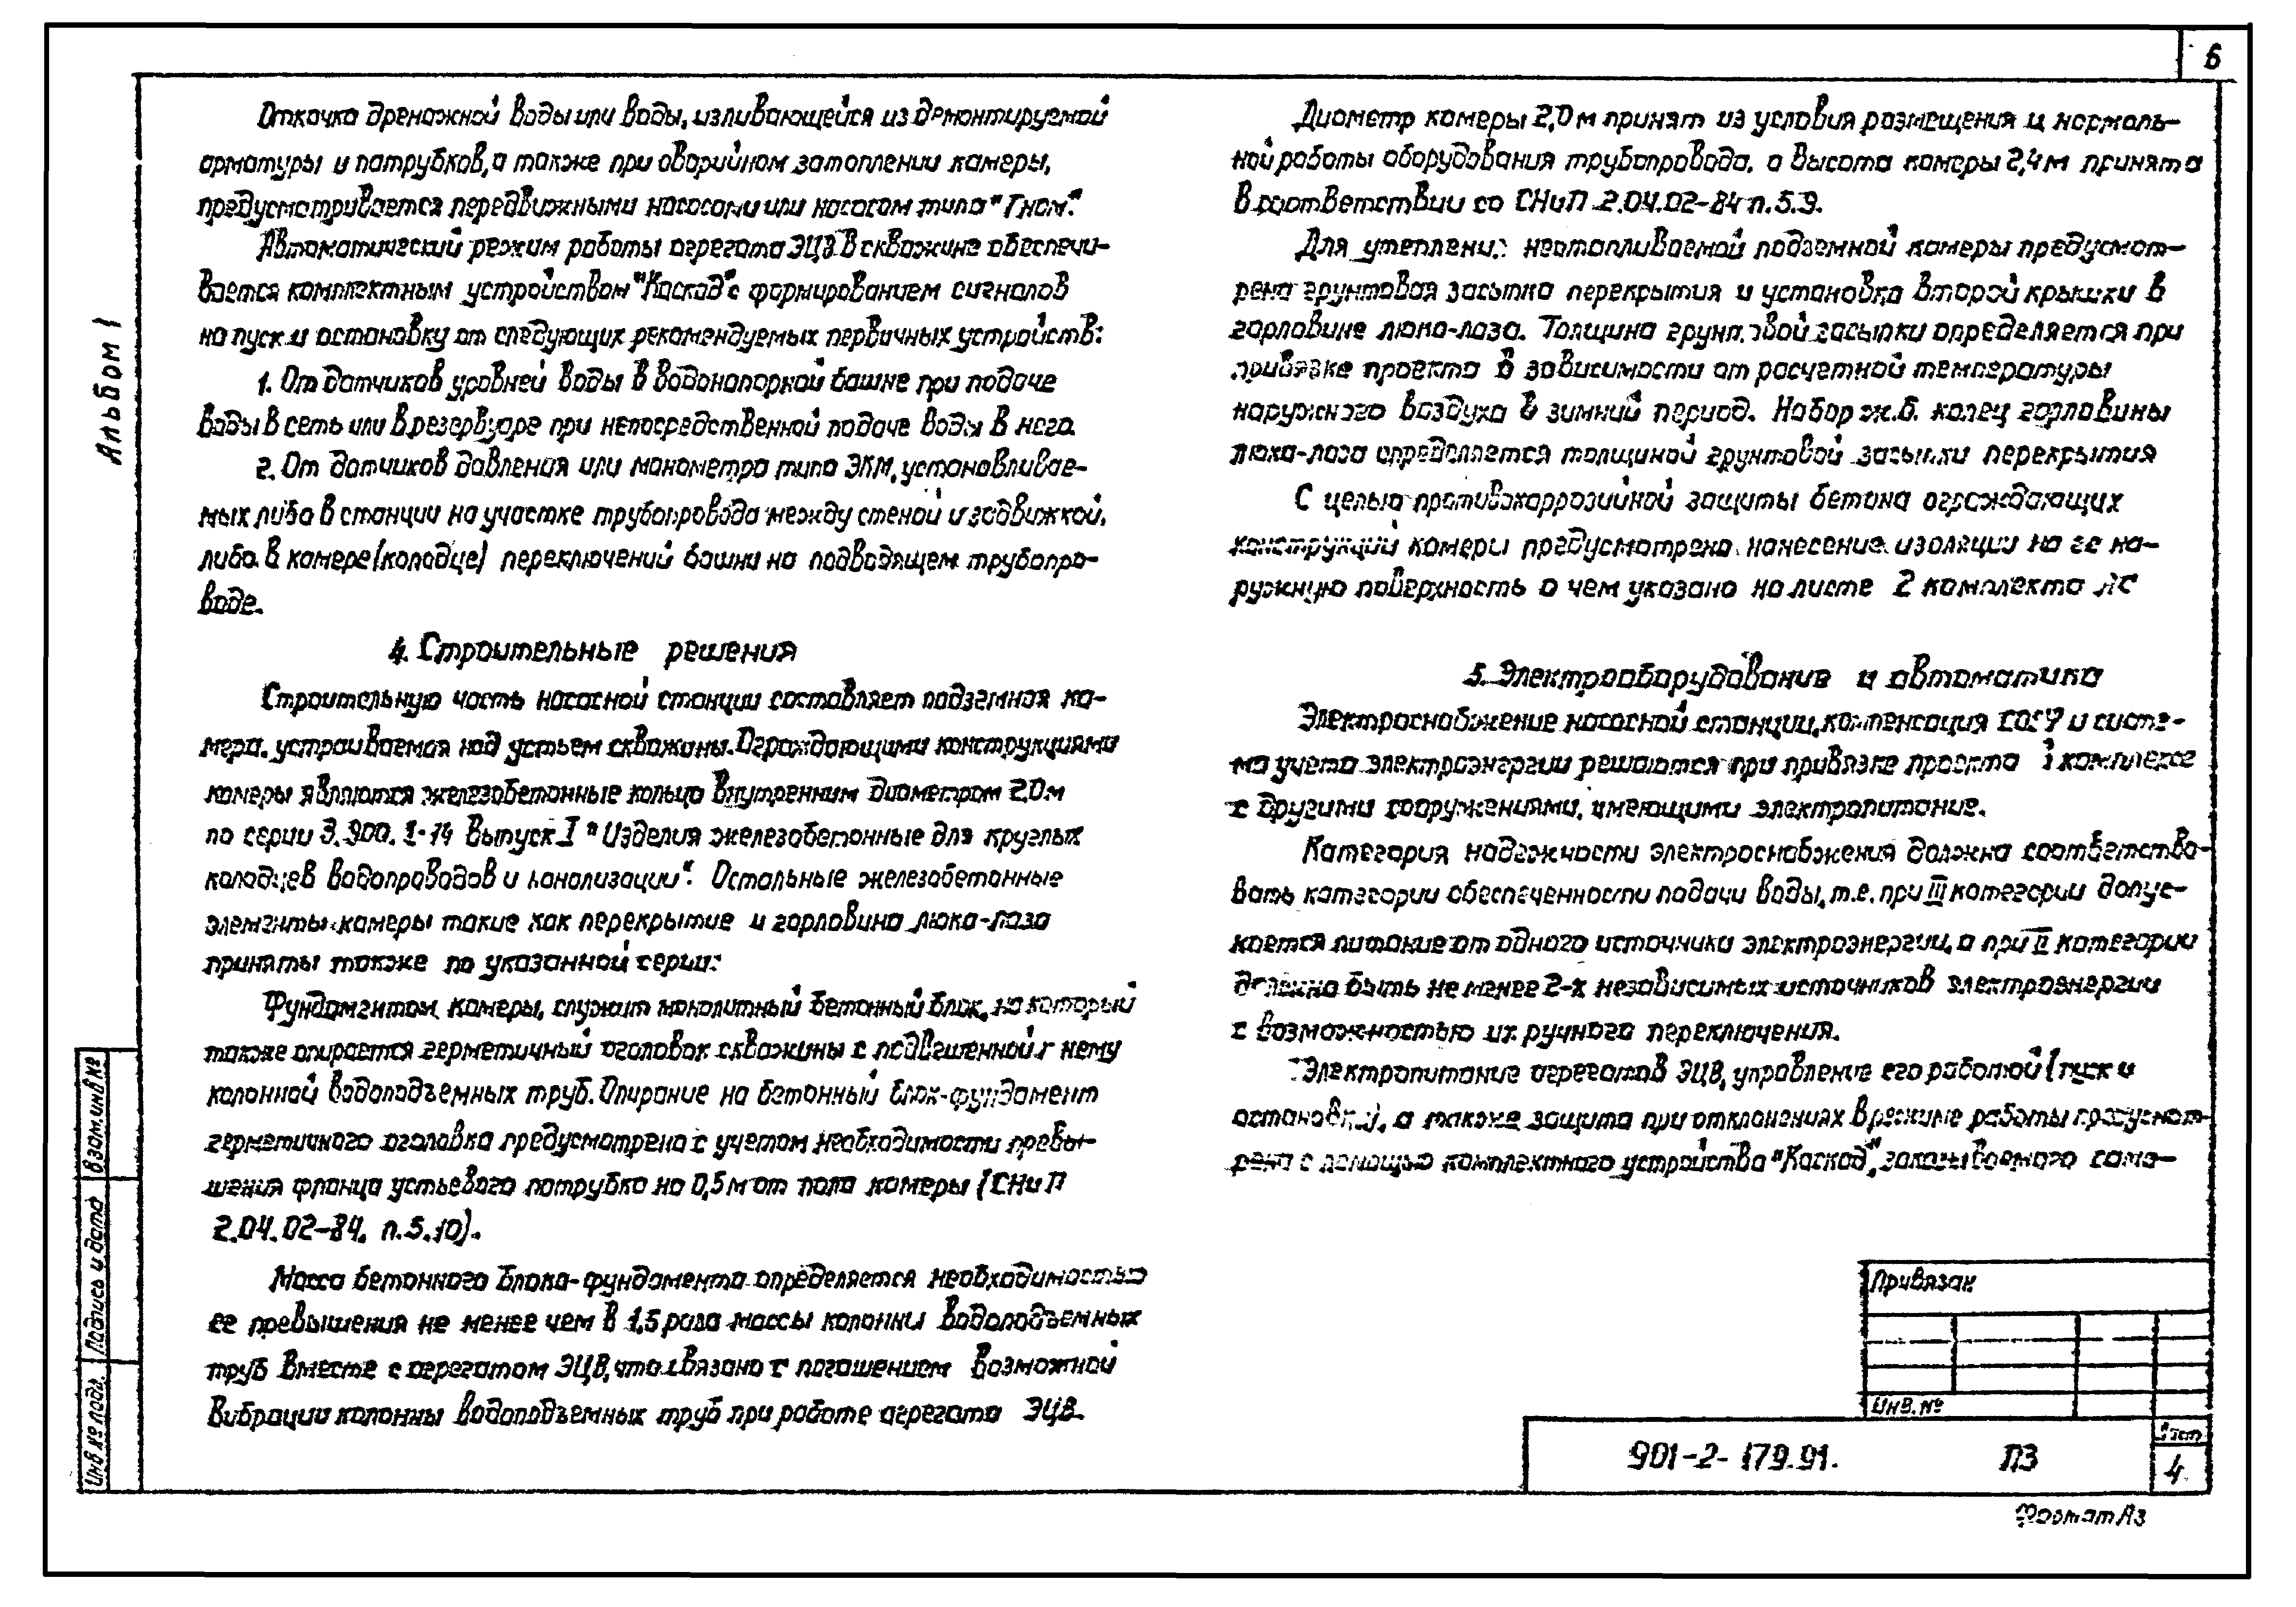 6
Альбом 1
Откачка дренажной воды или воды, изливающейся из демонтируемой
арматуры и патрубков, а также при аварийном затоплении камеры,
предусматривается передвижными насосами или насосом типа "Гном".
Автоматический режим работы агрегата ЭЦВ в скважине обеспечи-
вается комплектным устройством "Каскад" с формированием сигналов
на пуск и остановку от следующих рекомендуемых первичных устройств:
1. От датчиков уровней воды в водонапорной башне при подаче
воды в сеть или в резервуаре при непосредственной подаче воды в него.
2. От датчиков давления или манометра типа ЭКМ, устанавливае-
мых либо в станции на участке трубопровода между стеной и задвижкой,
либо в камере (колодце) переключений башни на подводящем трубопро-
воде.
4. Строительные решения
Строительную часть насосной станции составляет подземная ка-
мера, устраиваемая над устьем скважины. Ограждающими конструкциями
камеры являются железобетонные кольца внутренним диаметром 2,0 м
по серии 3.900.1-14 выпуск I "Изделия железобетонные для круглых
колодцев водопроводов и канализации". Остальные железобетонные
элементы камеры такие как перекрытие и горловина люка-лаза
приняты также по указанной серии.
Фундаментом камеры, служит монолитный бетонный блок, на который
также опирается герметичный оголовок скважины с подвешенной к нему
колонной водоподъемных труб. Опирание на бетонный блок-фундамент
герметичного оголовка предусмотрено с учетом необходимости превы-
шения фланца устьевого патрубка на 0,5 м от пола камеры (СНиП
2.04.02-84. п.5.10).
Масса бетонного блока-фундамента определяется необходимостью
ее превышения не менее чем в 1,5 раза массы колонны водоподъемных
труб вместе с агрегатом ЭЦВ, что связано с погашением возможной
вибрации колонны водоподъемных труб при работе агрегата ЭЦВ.
Диаметр камеры 2,0 м принят из условия размещения и нормаль-
ной работы оборудования трубопровода, а высота камеры 2,4 м принята
в соответствии со СНиП 2.04.02-84 п.5.9.
Для утепления неотапливаемой подземной камеры предусмот-
рена грунтовая засыпка перекрытия и установка второй крышки в
горловине люка-лаза. Толщина грунтовой засыпки определяется при
привязке проекта в зависимости от расчетной температуры
наружного воздуха в зимний период. Набор ж.б. колец горловины
люка-лаза определяется толщиной грунтовой засыпки перекрытия
С целью противокоррозийной защиты бетона ограждающих
конструкций камеры предусмотрена нанесение изоляции на ее на-
ружную поверхность о чем указано на листе 2 комплекта АС
5. Электрооборудование и автоматика
Электроснабжение насосной станции, компенсация cos φ и систе-
ма учета электроэнергии решаются при привязке проекта в комплексе
с другими сооружениями, имеющими электропитание.
Категория надежности электроснабжения должна соответство-
вать категории обеспеченности подачи воды, т.е. при III категории допус-
кается питание от одного источника электроэнергии, а при II категории
должно быть не менее 2-х независимых источников электроэнергии
с возможностью их ручного переключения.
Электропитание агрегатов ЭЦВ, управление его работой (пуск и
остановка), а также защита при отклонениях в режиме работы предусмот-
рена с помощью комплектного устройства "Каскад", заказываемого само-
Взам. инв №
Подпись и дата
Инв № подл.
Привязан
Инв. №
901-2-179.91.
ПЗ
Лист
4
Формат А3